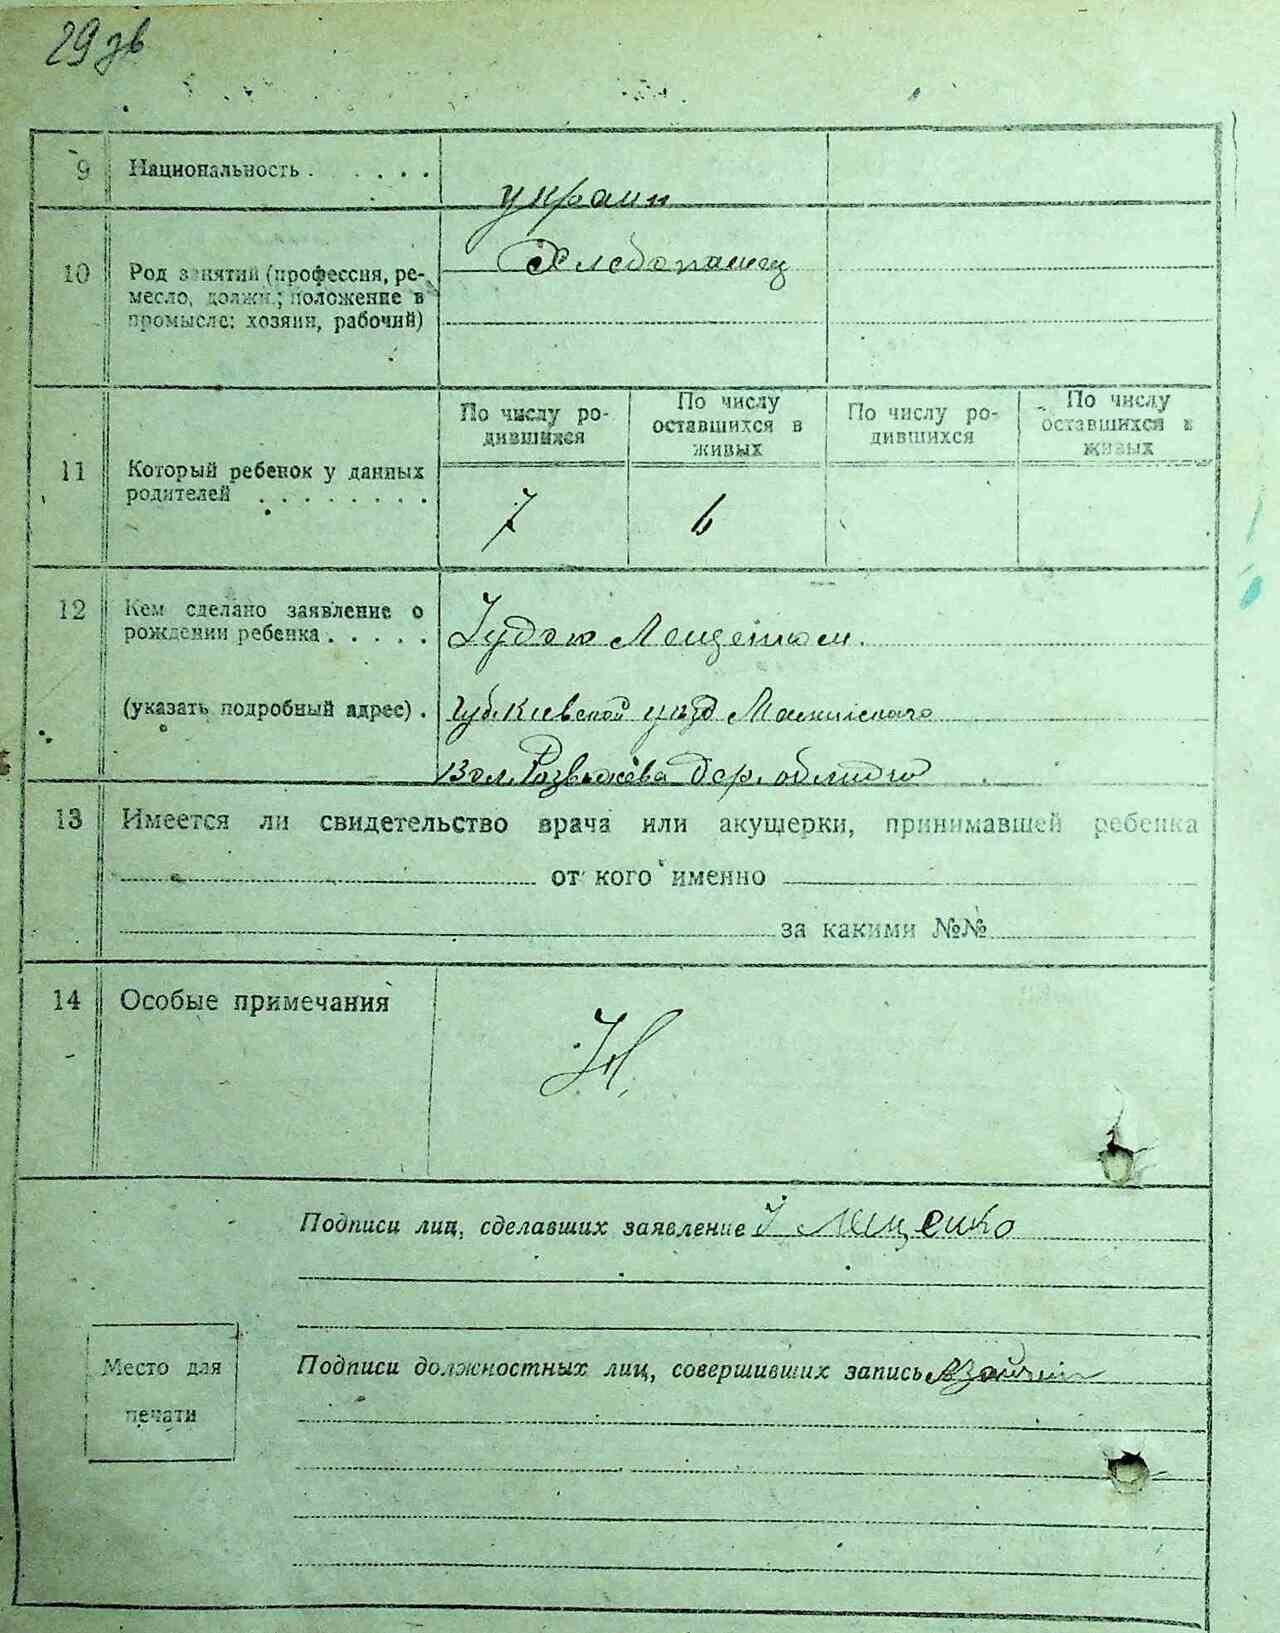 29 зв
9 Национальность . . . . . .
украин
10 Род занятий (профессия, ре-
месло, должн.; положение в
промысле: хозяин, рабочий)
Хлебопашец
11 Который ребенок у данных
родителей . . . . . . . .
По числу ро-
дившихся
По числу
оставшихся в
живых
По числу ро-
дившихся
По числу
оставшихся в
живых
7 6
12 Кем сделано заявление о
рождении ребенка . . . . .
Лещенком.
(указать подробный адрес) .
Губ. Киевской уезд
Вол. Розважева дер.
13 Имеется ли свидетельство врача или акушерки, принимавшей ребенка
от кого именно
за какими №№
14 Особые примечания
Подписи лиц, сделавших заявление І Лещенко
Подписи должностных лиц, совершивших запись
Место для
печати